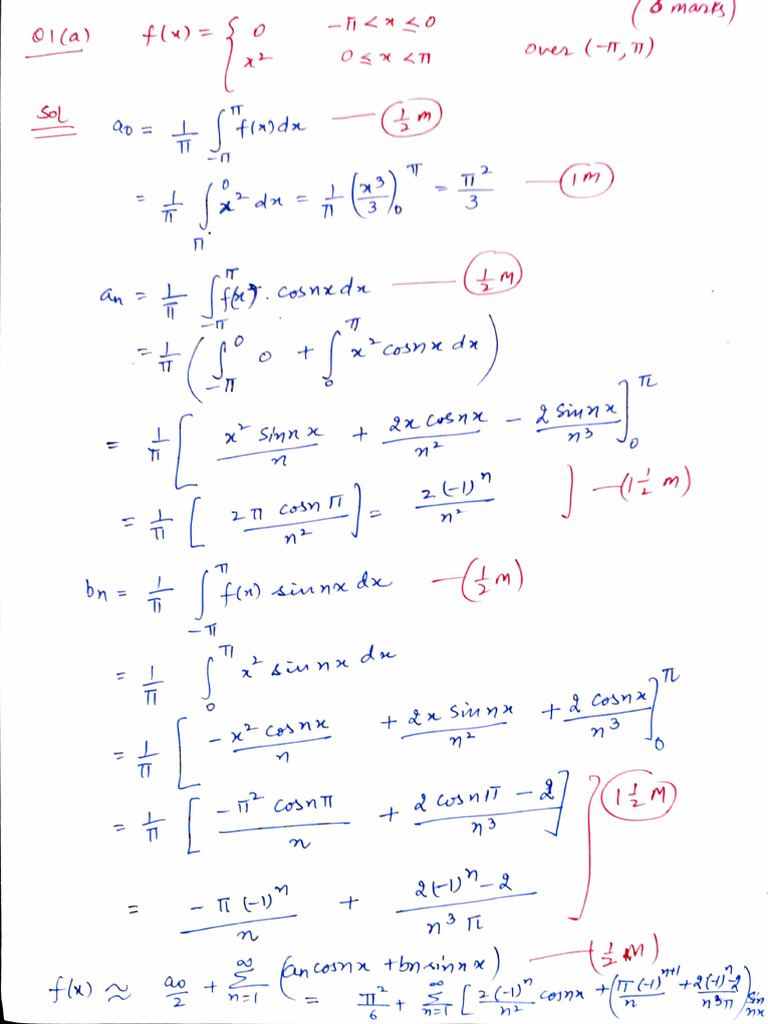 (6 marks)
Q1(a) f(x) = { 0 -π < x ≤ 0
x² 0 ≤ x < π over (-π, π)
Sol a₀ = 1/π ∫_{-π}^{π} f(x) dx — (1/2 m)
= 1/π ∫_{π}^{0} x² dx = 1/π (x³/3)₀^π = π²/3 — (1 m)
aₙ = 1/π ∫_{-π}^{π} f(x). cosnx dx — (1/2 m)
= 1/π ( ∫_{-π}^{0} 0 + ∫_{0}^{π} x² cosnx dx )
= 1/π [ x² sinnx/n + 2x cosnx/n² - 2 sinnx/n³ ]₀^π
= 1/π [ 2π cosnπ/n² ] = 2(-1)ⁿ/n² ] — (1 1/2 m)
bₙ = 1/π ∫_{-π}^{π} f(x) sinnx dx — (1/2 m)
= 1/π ∫_{0}^{π} x² sinnx dx
= 1/π [ -x² cosnx/n + 2x sinnx/n² + 2 cosnx/n³ ]₀^π
= 1/π [ -π² cosnπ/n + 2 cosnπ - 2/n³ ] ] (1 1/2 M)
= -π(-1)ⁿ/n + 2(-1)ⁿ - 2/n³π
— (1/2 M)
f(x) ≈ a₀/2 + Σ_{n=1}^{∞} (aₙ cosnx + bₙ sinnx) = π²/6 + Σ_{n=1}^{∞} [ 2(-1)ⁿ/n² cosnx + (π(-1)ⁿ⁺¹/n + 2(-1)ⁿ-2/n³π) sin nx